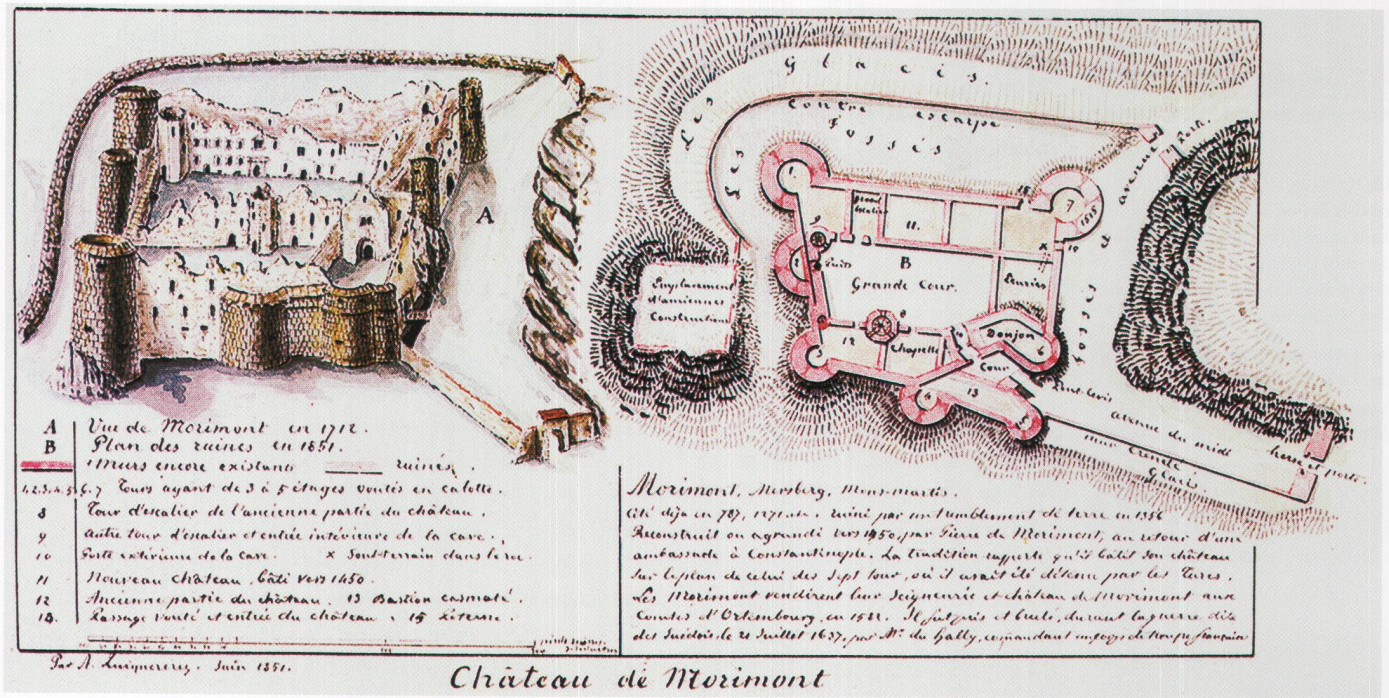 Les Glacis.
Contre escarpe.
Les Fossés
Porte.
avenue
Grand Escalier
11.
Puits
B
Grande Cour.
Donjon
Chapelle
Cour
Fossés
Pont-levis
avenue du midi
herse et porte.
Glacis
Emplacement
d'anciennes
Constructions
A
A Vue de Morimont en 1712.
B Plan des ruines en 1851.
Murs encore existans ruinés.
1.2.3.4.5.6.7 Tours ayant de 3 à 5 étages voutés en calotte.
8 Tour d'escalier de l'ancienne partie du château.
9 autre tour d'escalier et entrée intérieure de la cave.
10 Porte extérieure de la cave. x Souterrain dans le roc.
11 Nouveau château, bâti vers 1450.
12 Ancienne partie du château. 13 Bastion casmaté.
13. Passage vouté et entrée du château. 15 Citerne.
Par A. Quiquerez. Juin 1851.
Morimont, Mersberg, Mons-martis.
Cité déja en 787, 1271 ruiné par un tremblement de terre en 1356
Reconstruit ou agrandi vers 1450, par Pierre de Morimont, au retour d'une
ambassade à Constantinople. La tradition rapporte qu'il bâtit son château
sur le plan de celui des Sept tour, où il avait été détenu par les Turcs.
Les Morimont vendirent leur Seigneurie et château de Morimont aux
Comtes d'Ortembourg, en 1582. Il fut pris et brulé, durant la guerre dite
des Suédois, le 21 Juillet 1637, par Mr. du Hally, commandant un corps de troupe française
Château de Morimont